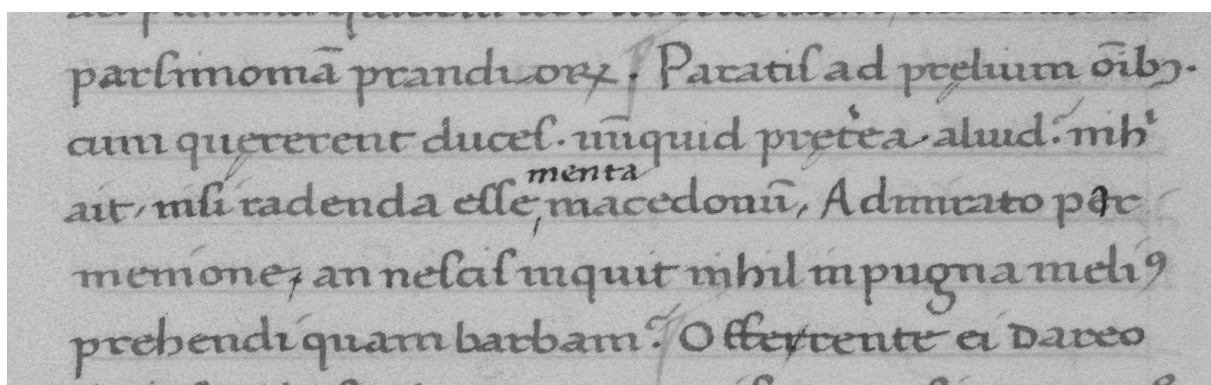 parsimoniā prandiorꝝ. Paratis ad pręlium om̄ibꝫ.
cum quęrerent duces. nūquid pręt̾ea aliud. nih̾
ait, nisi radenda esse menta macedonū, Admirato par
menione, an nescis inquit nihil in pugna meliꝰ
prehendi quam barbam? Offerente ei Dareo